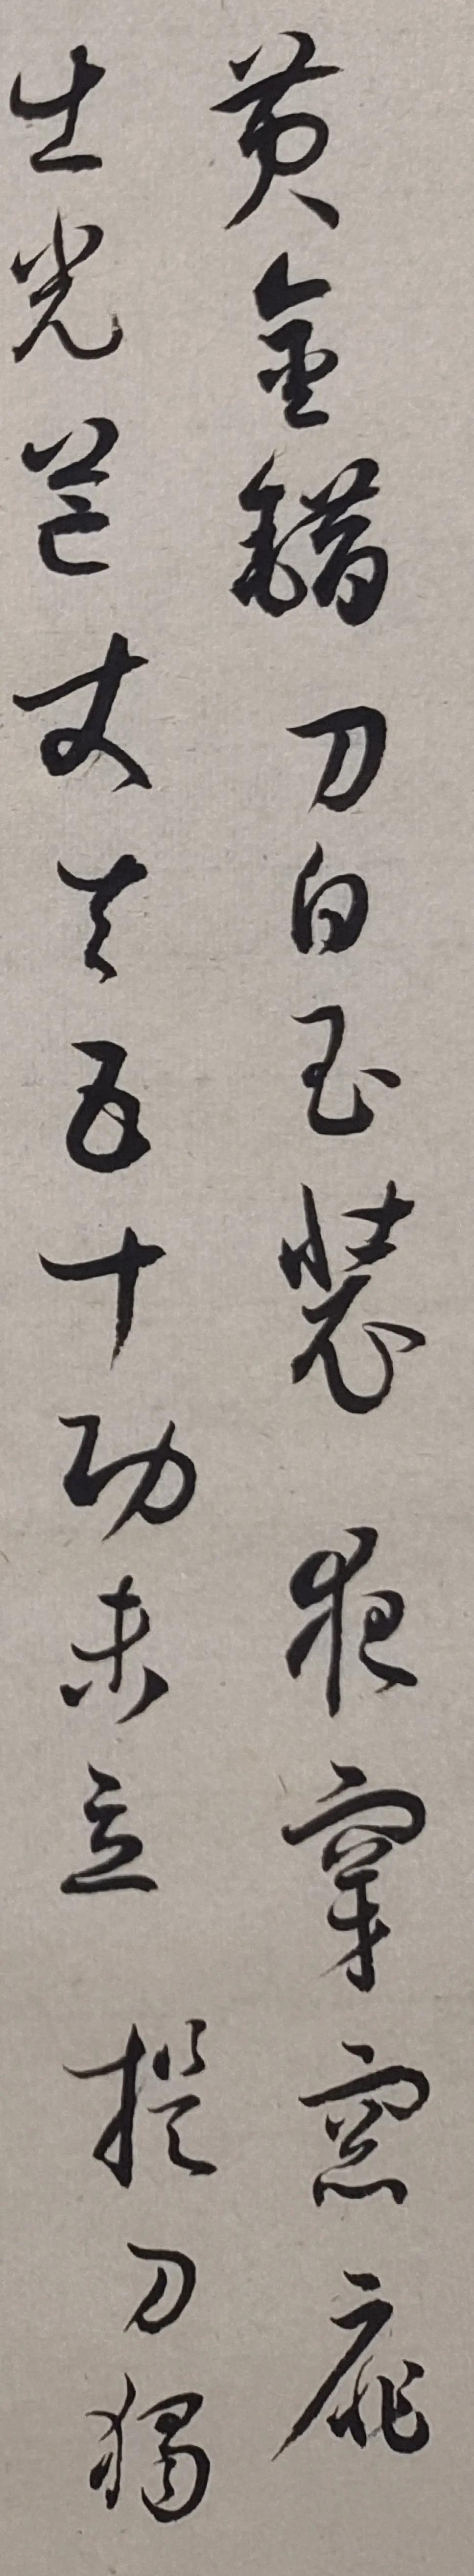 黄金错刀白玉装夜穿窗扉
出光芒丈夫五十功未立提刀独